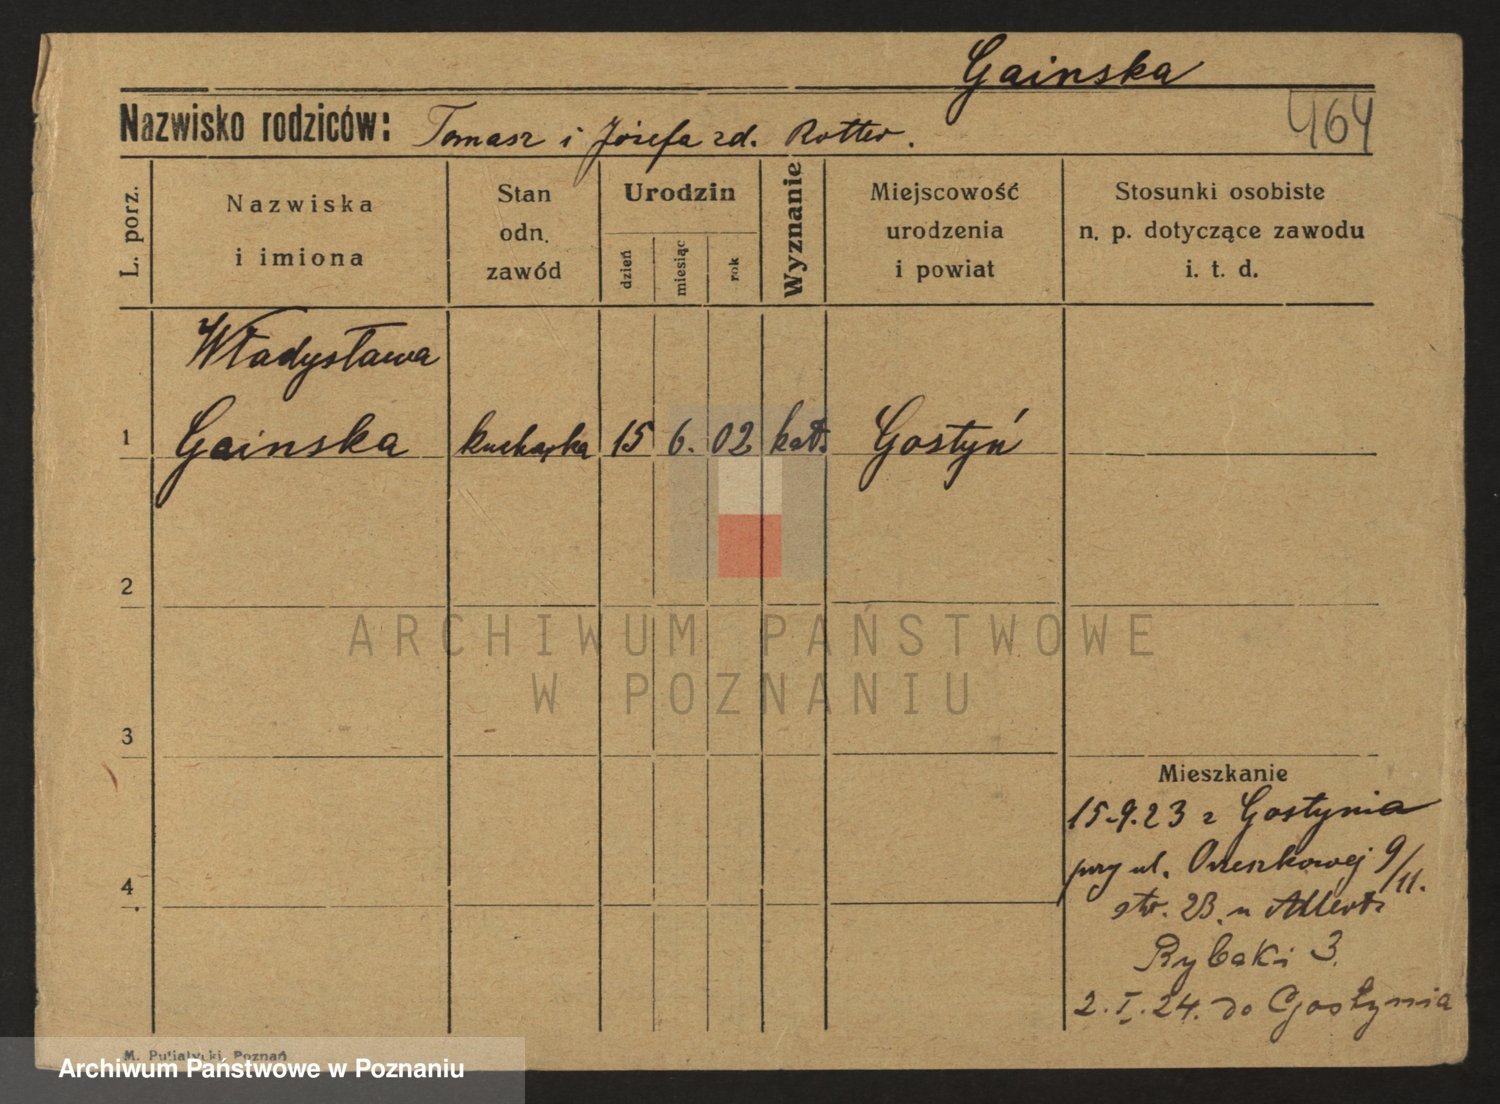 Gainska
464
Nazwisko rodziców: Tomasz i Józefa zd. Rotter.
L. porz.
Nazwiska
i imiona
Stan
odn.
zawód
Urodzin
dzień
miesiąc
rok
Wyznanie
Miejscowość
urodzenia
i powiat
Stosunki osobiste
n. p. dotyczące zawodu
i. t. d.
Władysława
1 Gainska kucharka 15 6. 02 kat. Gostyń
2
ARCHIWUM PAŃSTWOWE
W POZNANIU
3
Mieszkanie
15.9.23 z Gostynia
przy ul. Orzeszkowej 9/11.
stw. 23. u
4
Rybaki 3.
2.I.24. do Gostynia
M. Putiatycki, Poznań
Archiwum Państwowe w Poznaniu